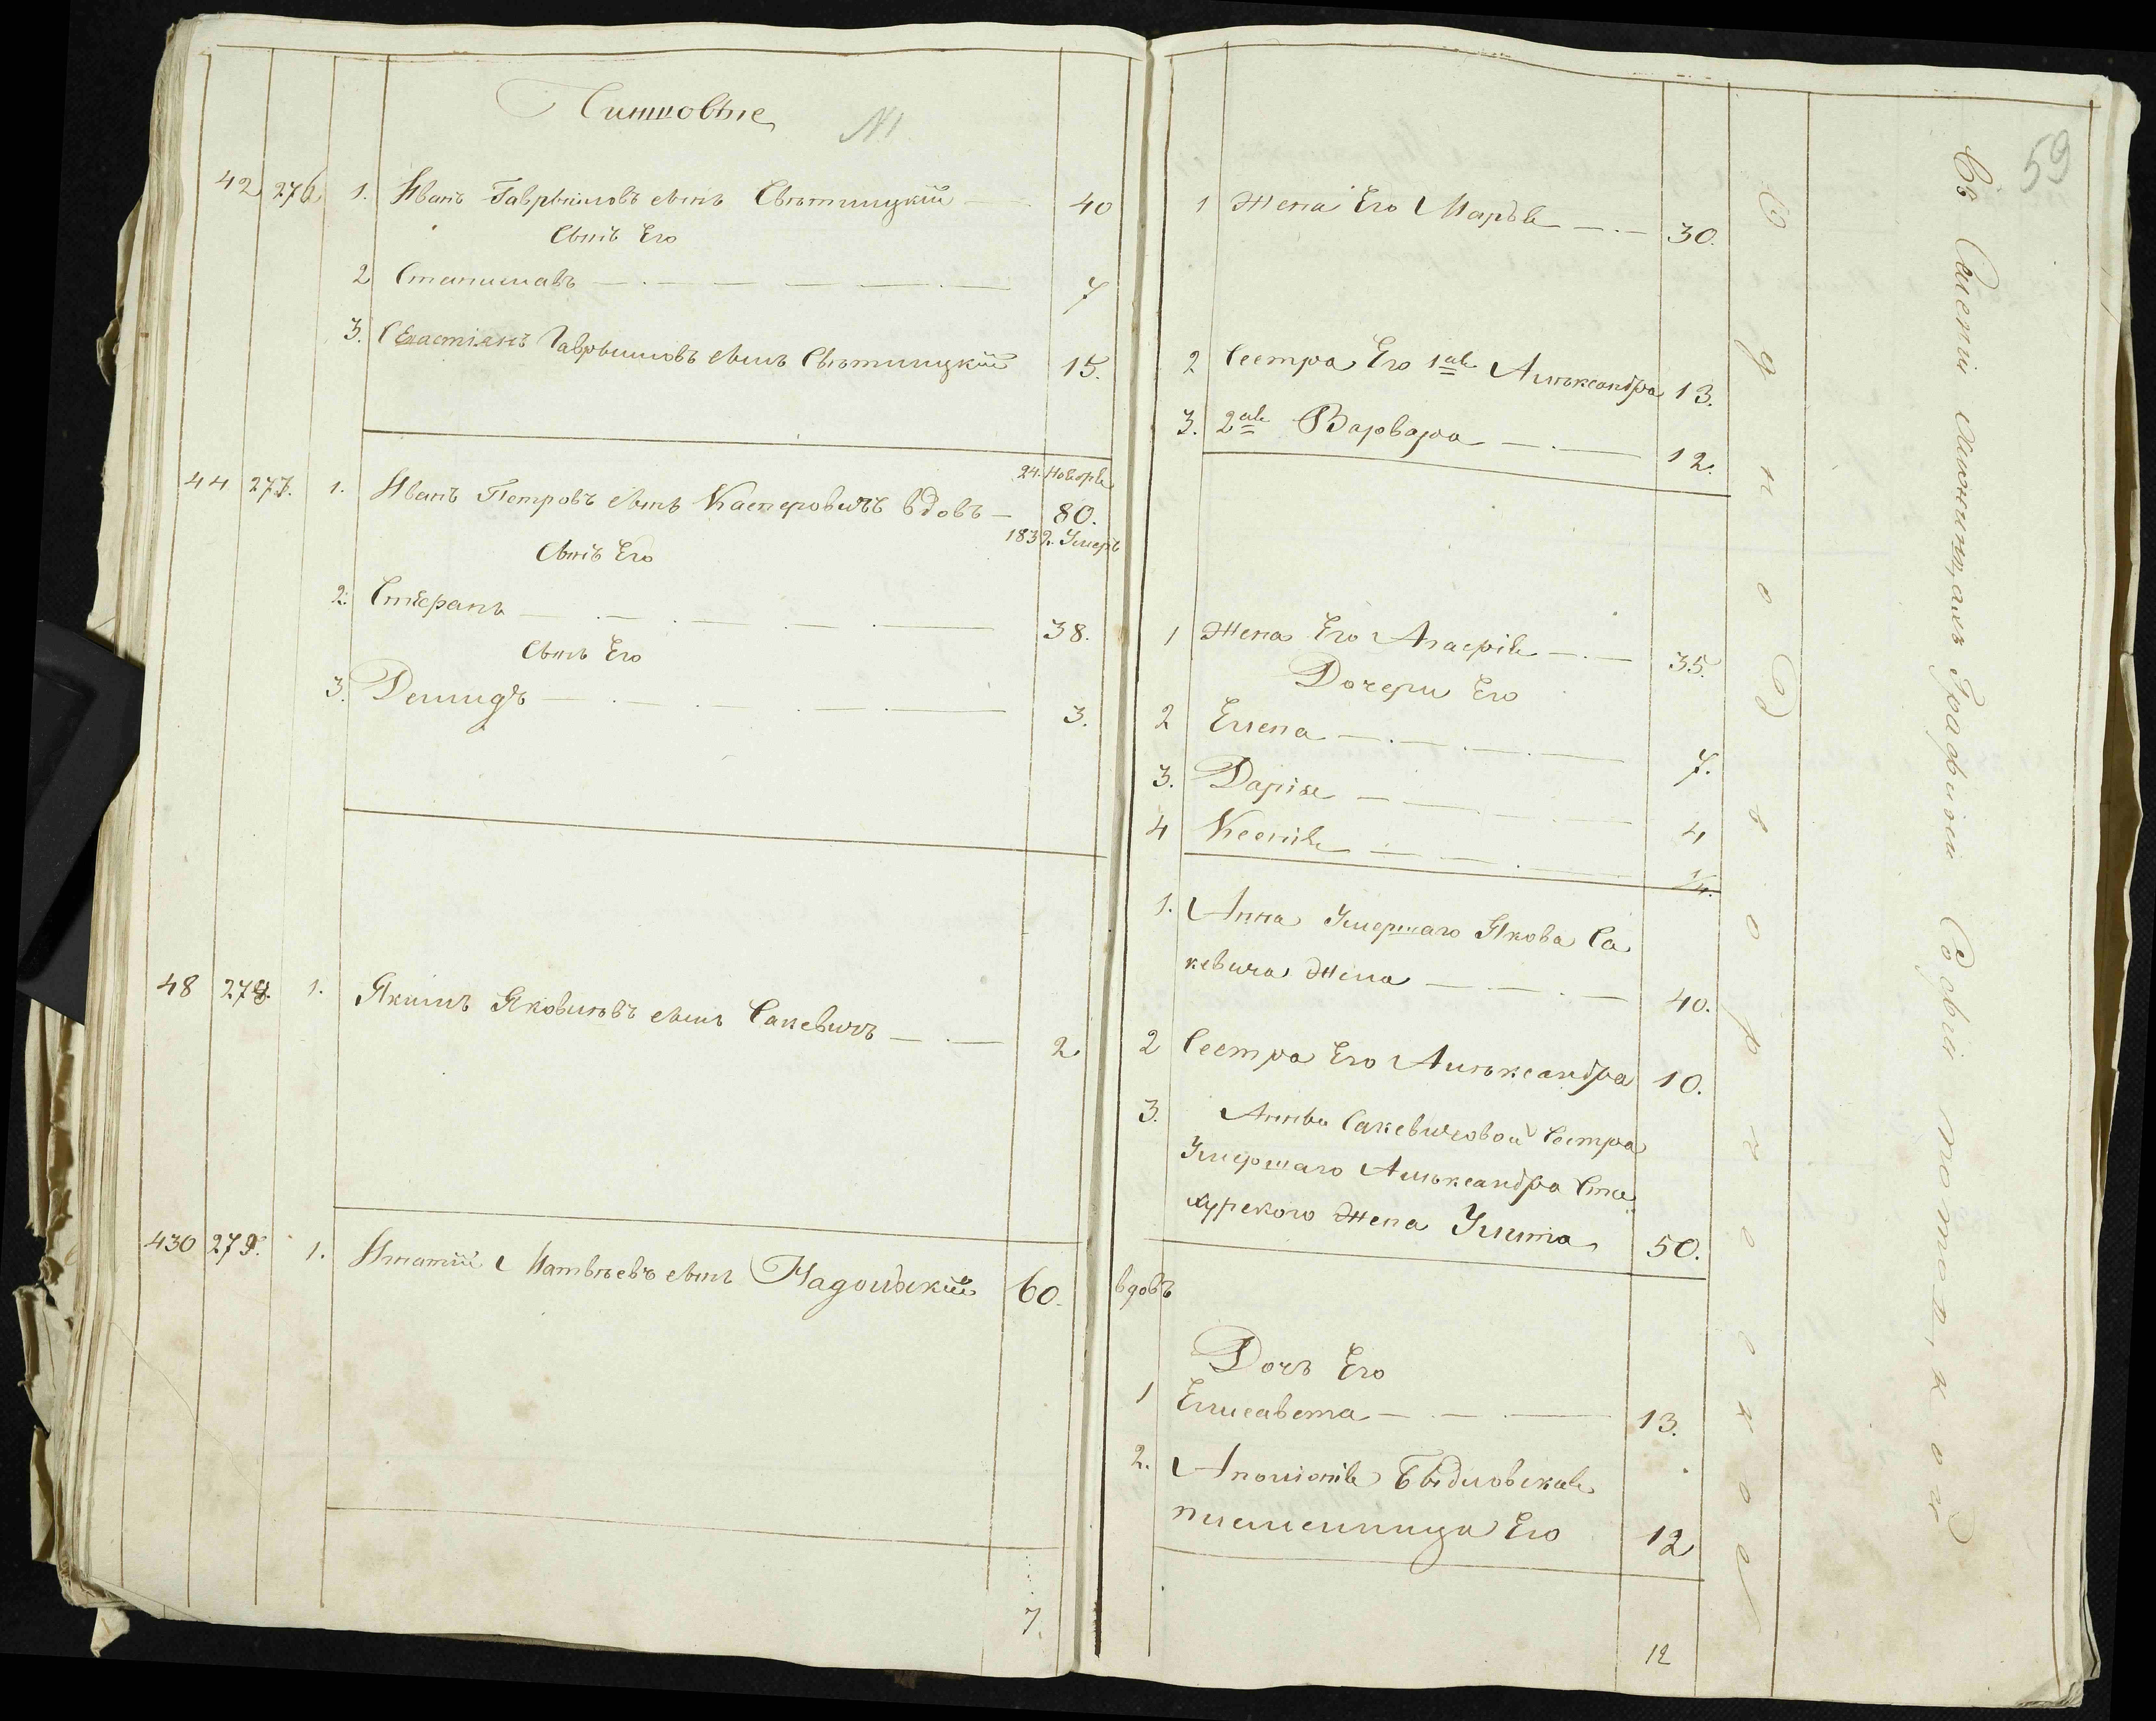 №1
42 276 1. Иванъ Гаврыиловъ сынъ Свѣтлицкій 40
Сынъ Его
2 Станиславъ 7
3. Гаврыиловъ сынъ Свѣтлицкій 15.
44 277. 1. Иванъ Петровъ сынъ Касперовичъ вдовъ 80.
24. Ноября
1832. Умеръ
Сынъ Его
2. Стефанъ 38.
Сынъ Его
3. Демидъ 3.
48 278. 1. Якимъ Яковлевъ сынъ Сакевичъ 2
430 279. 1. Игнатій Матвѣевъ сынъ 60.
7.
59
1 Жена Его Марья 30.
2 Сестра Его 1ая Алѣксандра 13.
3. 2ая Варвара 12.
1 Жена Его Агафія 35.
Дочери Его
2 Елена 7.
3. Дарія 4
4 Ксенія
1. Анна Умершаго Якова Са
кевича Жена 40.
2 Сестра Его Алѣксандра 10.
3. Анны Сакевичовой Сестра
Умершаго Алѣксандра Ста
хурского Жена Улита 50.
вдовъ
Дочь Его
1 Елисавета 13.
2. Аполіонія
племенница Его 12
12
Однодворческой
Въ Селеніи